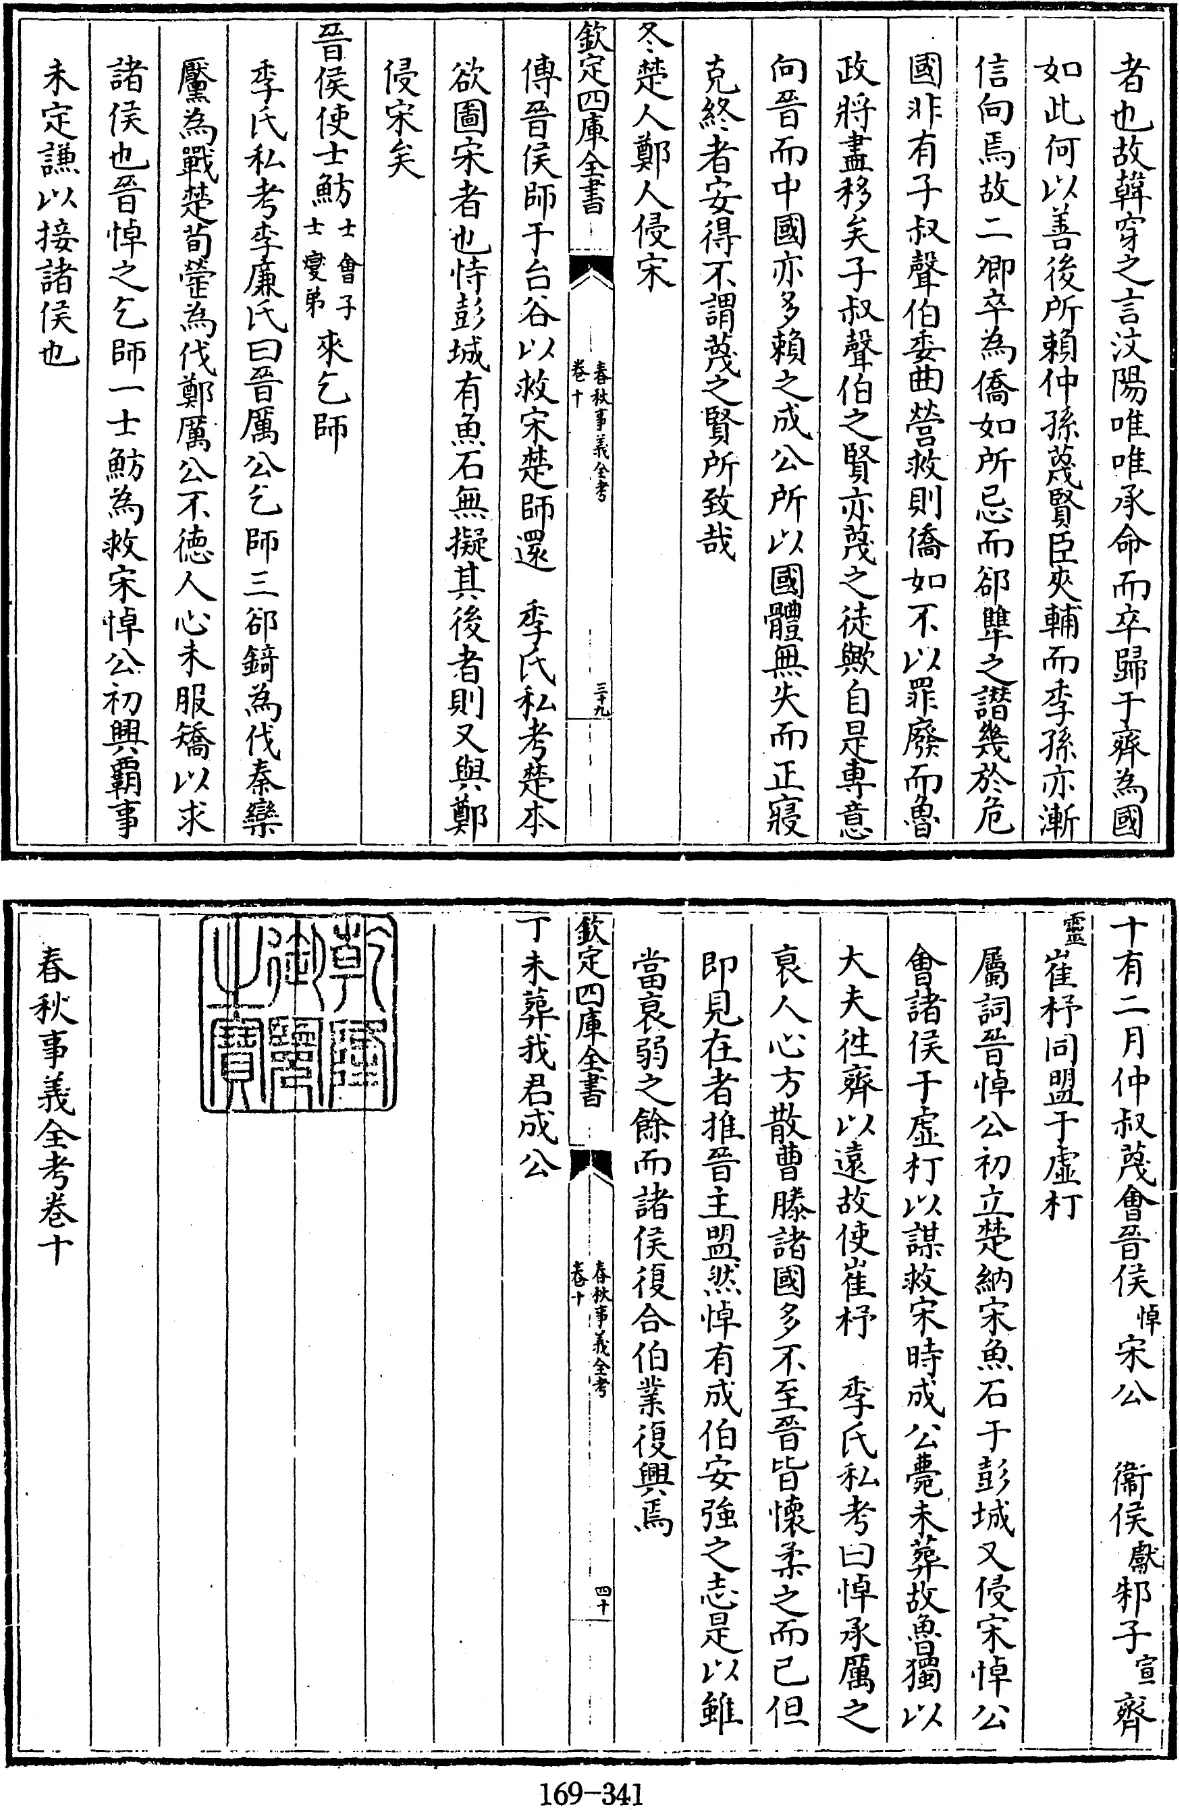 者也故韓穿之言汶陽唯唯承命而卒歸于齊為國
如此何以善後所賴仲孫蔑賢臣夾輔而季孫亦漸
信向焉故二卿卒為僑如所忌而郤犨之譖幾於危
國非有子叔聲伯委曲營救則僑如不以罪廢而魯
政將盡移矣子叔聲伯之賢亦蔑之徒歟自是專意
向晉而中國亦多賴之成公所以國體無失而正寢
克終者安得不謂蔑之賢所致哉
冬楚人鄭人侵宋
欽定四庫全書
春秋事義全考
卷十
三十九
傳晉侯師于台谷以救宋楚師還 季氏私考楚本
欲圖宋者也恃彭城有魚石無擬其後者則又與鄭
侵宋矣
晉侯使士魴士會子士燮弟來乞師
季氏私考李廉氏曰晉厲公乞師三郤錡為伐秦欒
黶為戰楚荀罃為伐鄭厲公不德人心未服矯以求
諸侯也晉悼之乞師一士魴為救宋悼公初興覇事
未定謙以接諸侯也
十有二月仲叔蔑會晉侯悼宋公 衞侯獻邾子宣齊
靈崔杼同盟于虛朾
屬詞晉悼公初立楚納宋魚石于彭城又侵宋悼公
會諸侯于虛朾以謀救宋時成公薨未葬故魯獨以
大夫徃齊以遠故使崔杼 季氏私考曰悼承厲之
衰人心方散曹滕諸國多不至晉皆懷柔之而已但
即見在者推晉主盟然悼有成伯安強之志是以雖
當衰弱之餘而諸侯復合伯業復興焉
欽定四庫全書
春秋事義全考
卷十
四十
丁未葬我君成公
乾隆御覽之寶
春秋事義全考卷十
169-341